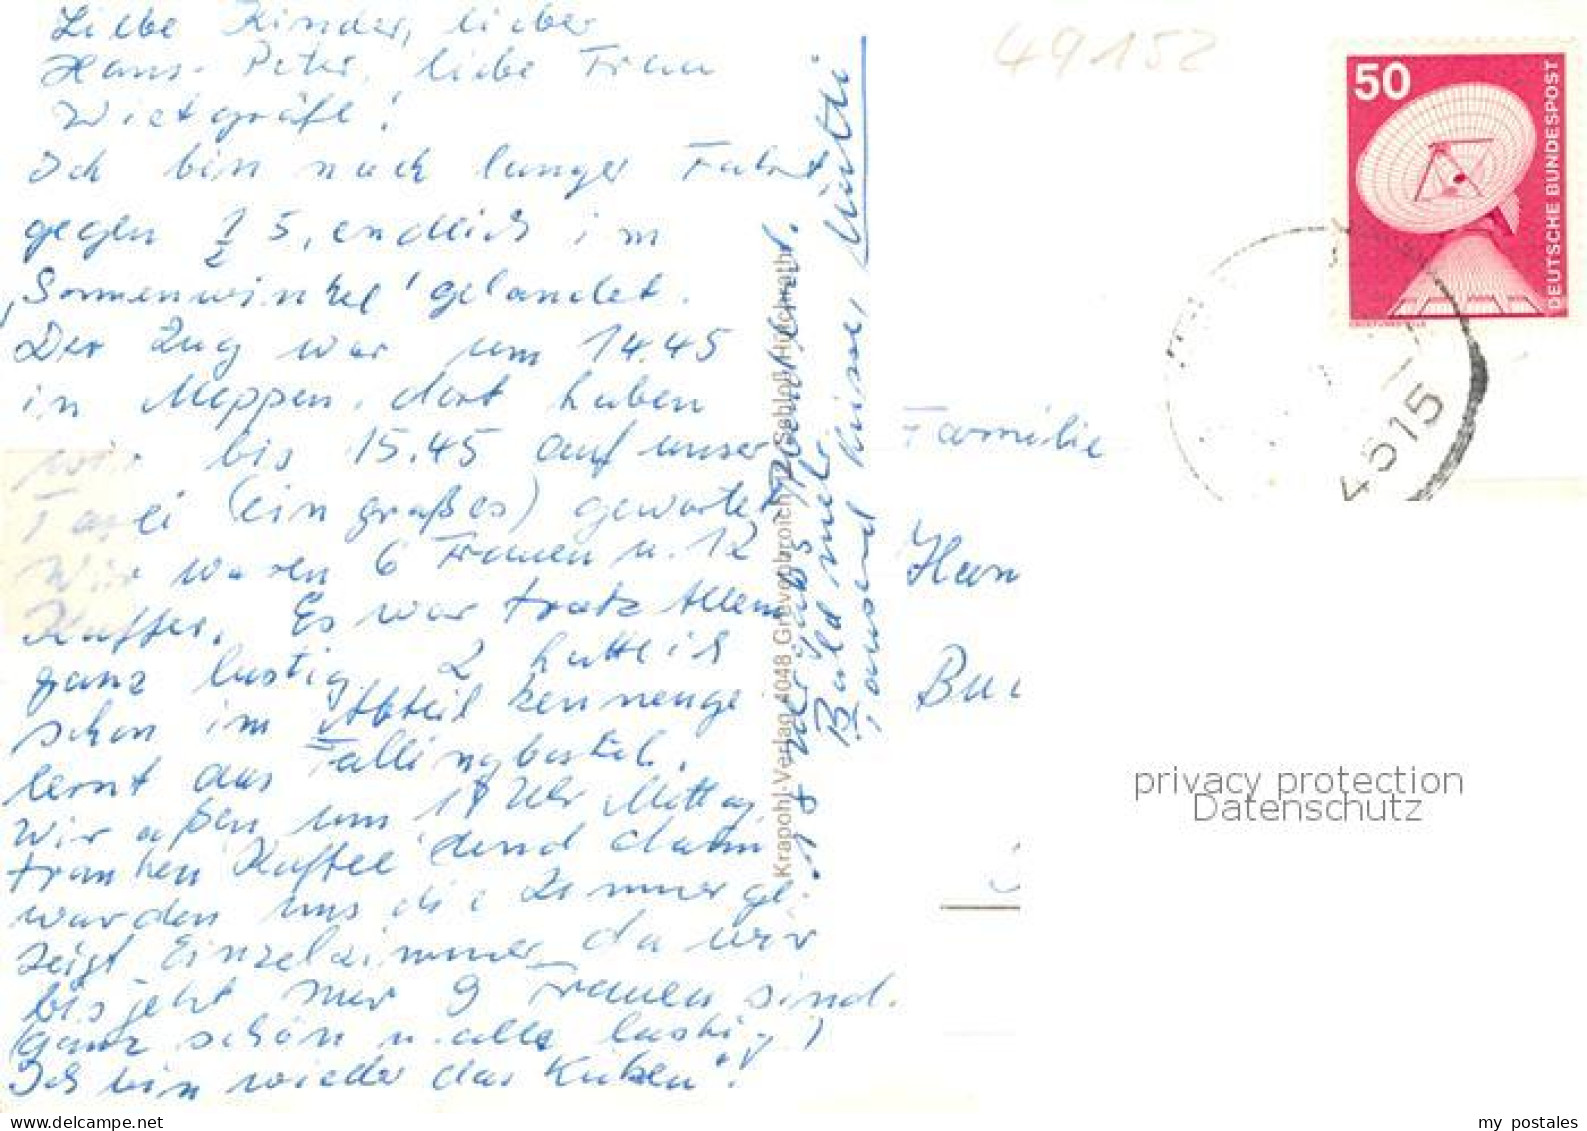 Liebe Kinder, lieber
Hans-Peter, liebe Frau
Wietgräfe!
Ich bin nach langer Fahrt,
gegen ½ 5, endlich im
„Sonnenwinkel" gelandet.
Der Zug war um 14.45
in Meppen, dort haben
wir bis 15.45 auf unser
Taxi (ein großes) gewartet
Wir waren 6 Frauen u. 12
Koffer. Es war trotz Allem
ganz lustig. 2 hatte ich
schon im Abteil kennenge
lernt aus Fallingbostel.
Wir aßen um 17 Uhr Mittag,
tranken Kaffee und dann
wurden uns die Zimmer ge-
zeigt Einzelzimmer, da wir
bis jetzt nur 9 Frauen sind.
(Ganz schön u. alle lustig!)
Ich bin wieder das „Küken"!
Bald mehr
Tausend Küsse, Mutti
Krapohl-Verlag 4048 Grevenbroich Schloß Hülchrath
49152
50
DEUTSCHE BUNDESPOST
4515
Familie
privacy protection
Datenschutz
my postales